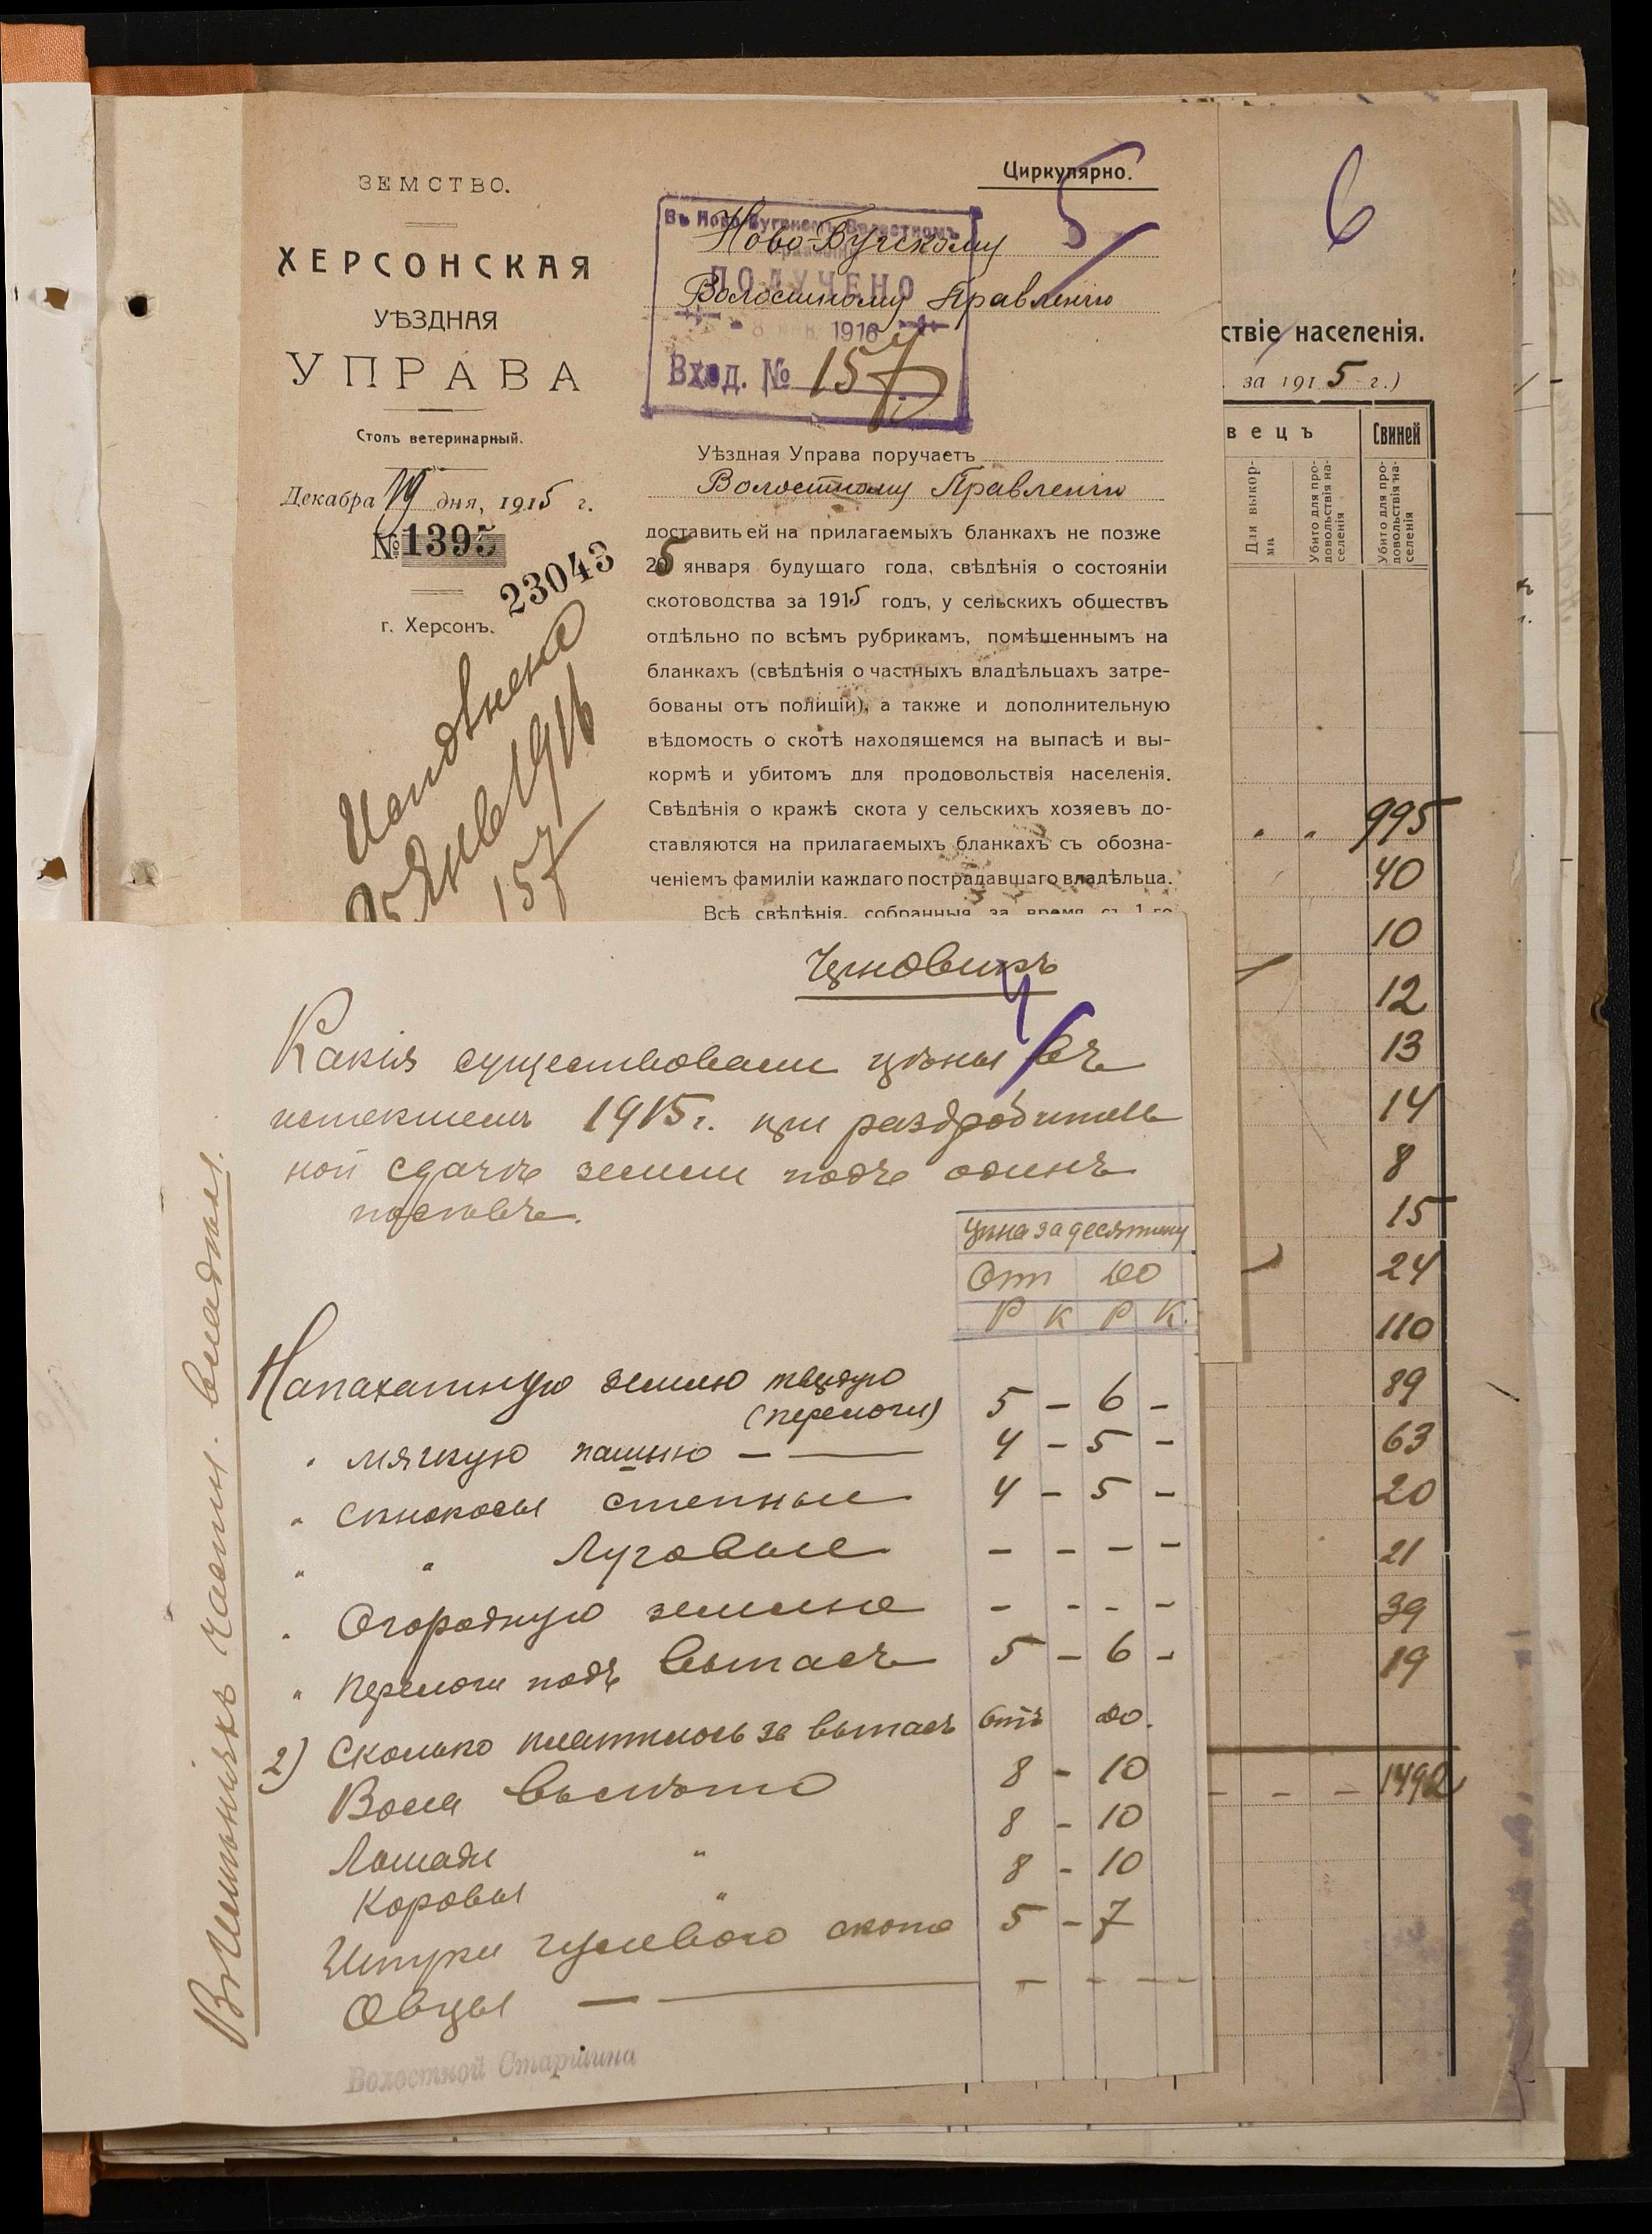 ЗЕМСТВО.
ХЕРСОНСКАЯ
УѢЗДНАЯ
УПРАВА
Столъ ветеринарный.
Декабра 19 дня, 1915 г.
№ 1395
23043
г. Херсонъ.
1916
157
Циркулярно.
5
Въ Ново-Бугскомъ Волостномъ
Правленіи
ПОЛУЧЕНО
1916
Вход. № 157
Ново-Бугскому
Волостному Правленію
Уѣздная Управа поручаетъ
Волостному Правленію
доставить ей на прилагаемыхъ бланкахъ не позже
25 января будущаго года, свѣдѣнія о состояніи
скотоводства за 1915 годъ, у сельскихъ обществъ
отдѣльно по всѣмъ рубрикамъ, помѣщеннымъ на
бланкахъ (свѣдѣнія о частныхъ владѣльцахъ затре-
бованы отъ полиціи), а также и дополнительную
вѣдомость о скотѣ находящемся на выпасѣ и вы-
кормѣ и убитомъ для продовольствія населенія.
Свѣдѣнія о кражѣ скота у сельскихъ хозяевъ до-
ставляются на прилагаемыхъ бланкахъ съ обозна-
ченіемъ фамиліи каждаго пострадавшаго владѣльца.
Всѣ свѣдѣнія, собранныя за время съ 1-го
6
ствіе населенія.
за 1915 г.)
вецъ
Свиней
Для выкор-
ми
Убито для про-
довольствія на-
селенія
Убито для про-
довольствія на-
селенія
995
40
10
12
13
14
8
15
24
110
89
63
20
21
39
19
- - - 1492
4
Какія существовали цѣны въ
истекшемъ 1915 г. при раздробитель
ной сдачѣ земли подъ одинъ
посѣвъ.
Цѣна за десятину
От До
Р К Р К.
На пахатную землю твердую
(перелоги) 5 - 6 -
" мягкую пашню - — 4 - 5 -
" Сѣнокосы степные 4 - 5 -
" " Луговые - - - -
" Огородную землю - - - -
" Перелоги подъ выпасъ 5 - 6 -
2) Сколько платилось за выпасъ отъ до.
Вола въ лѣто 8 - 10
Лошади " 8 - 10
Коровы " 8 - 10
Штуки гулевого скота 5 - 7
Овцы — — - - - -
Волостной Старшина